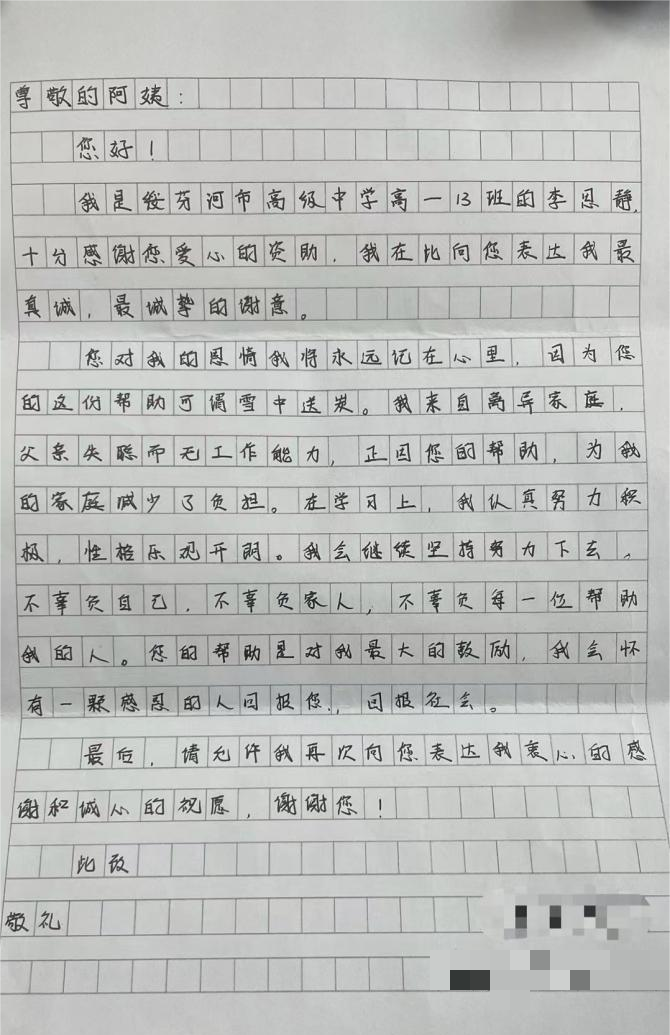 尊敬的阿姨：
您好！
我是绥芬河市高级中学高一13班的李恩静，
十分感谢您爱心的资助，我在此向您表达我最
真诚，最诚挚的谢意。
您对我的恩情我将永远记在心里，因为您
的这份帮助可谓雪中送炭。我来自离异家庭，
父亲失聪而无工作能力，正因您的帮助，为我
的家庭减少了负担。在学习上，我认真努力积
极，性格乐观开朗。我会继续坚持努力下去，
不辜负自己，不辜负家人，不辜负每一位帮助
我的人。您的帮助是对我最大的鼓励，我会怀
有一颗感恩的人回报您，回报社会。
最后，请允许我再次向您表达我衷心的感
谢和诚心的祝愿，谢谢您！
此致
敬礼